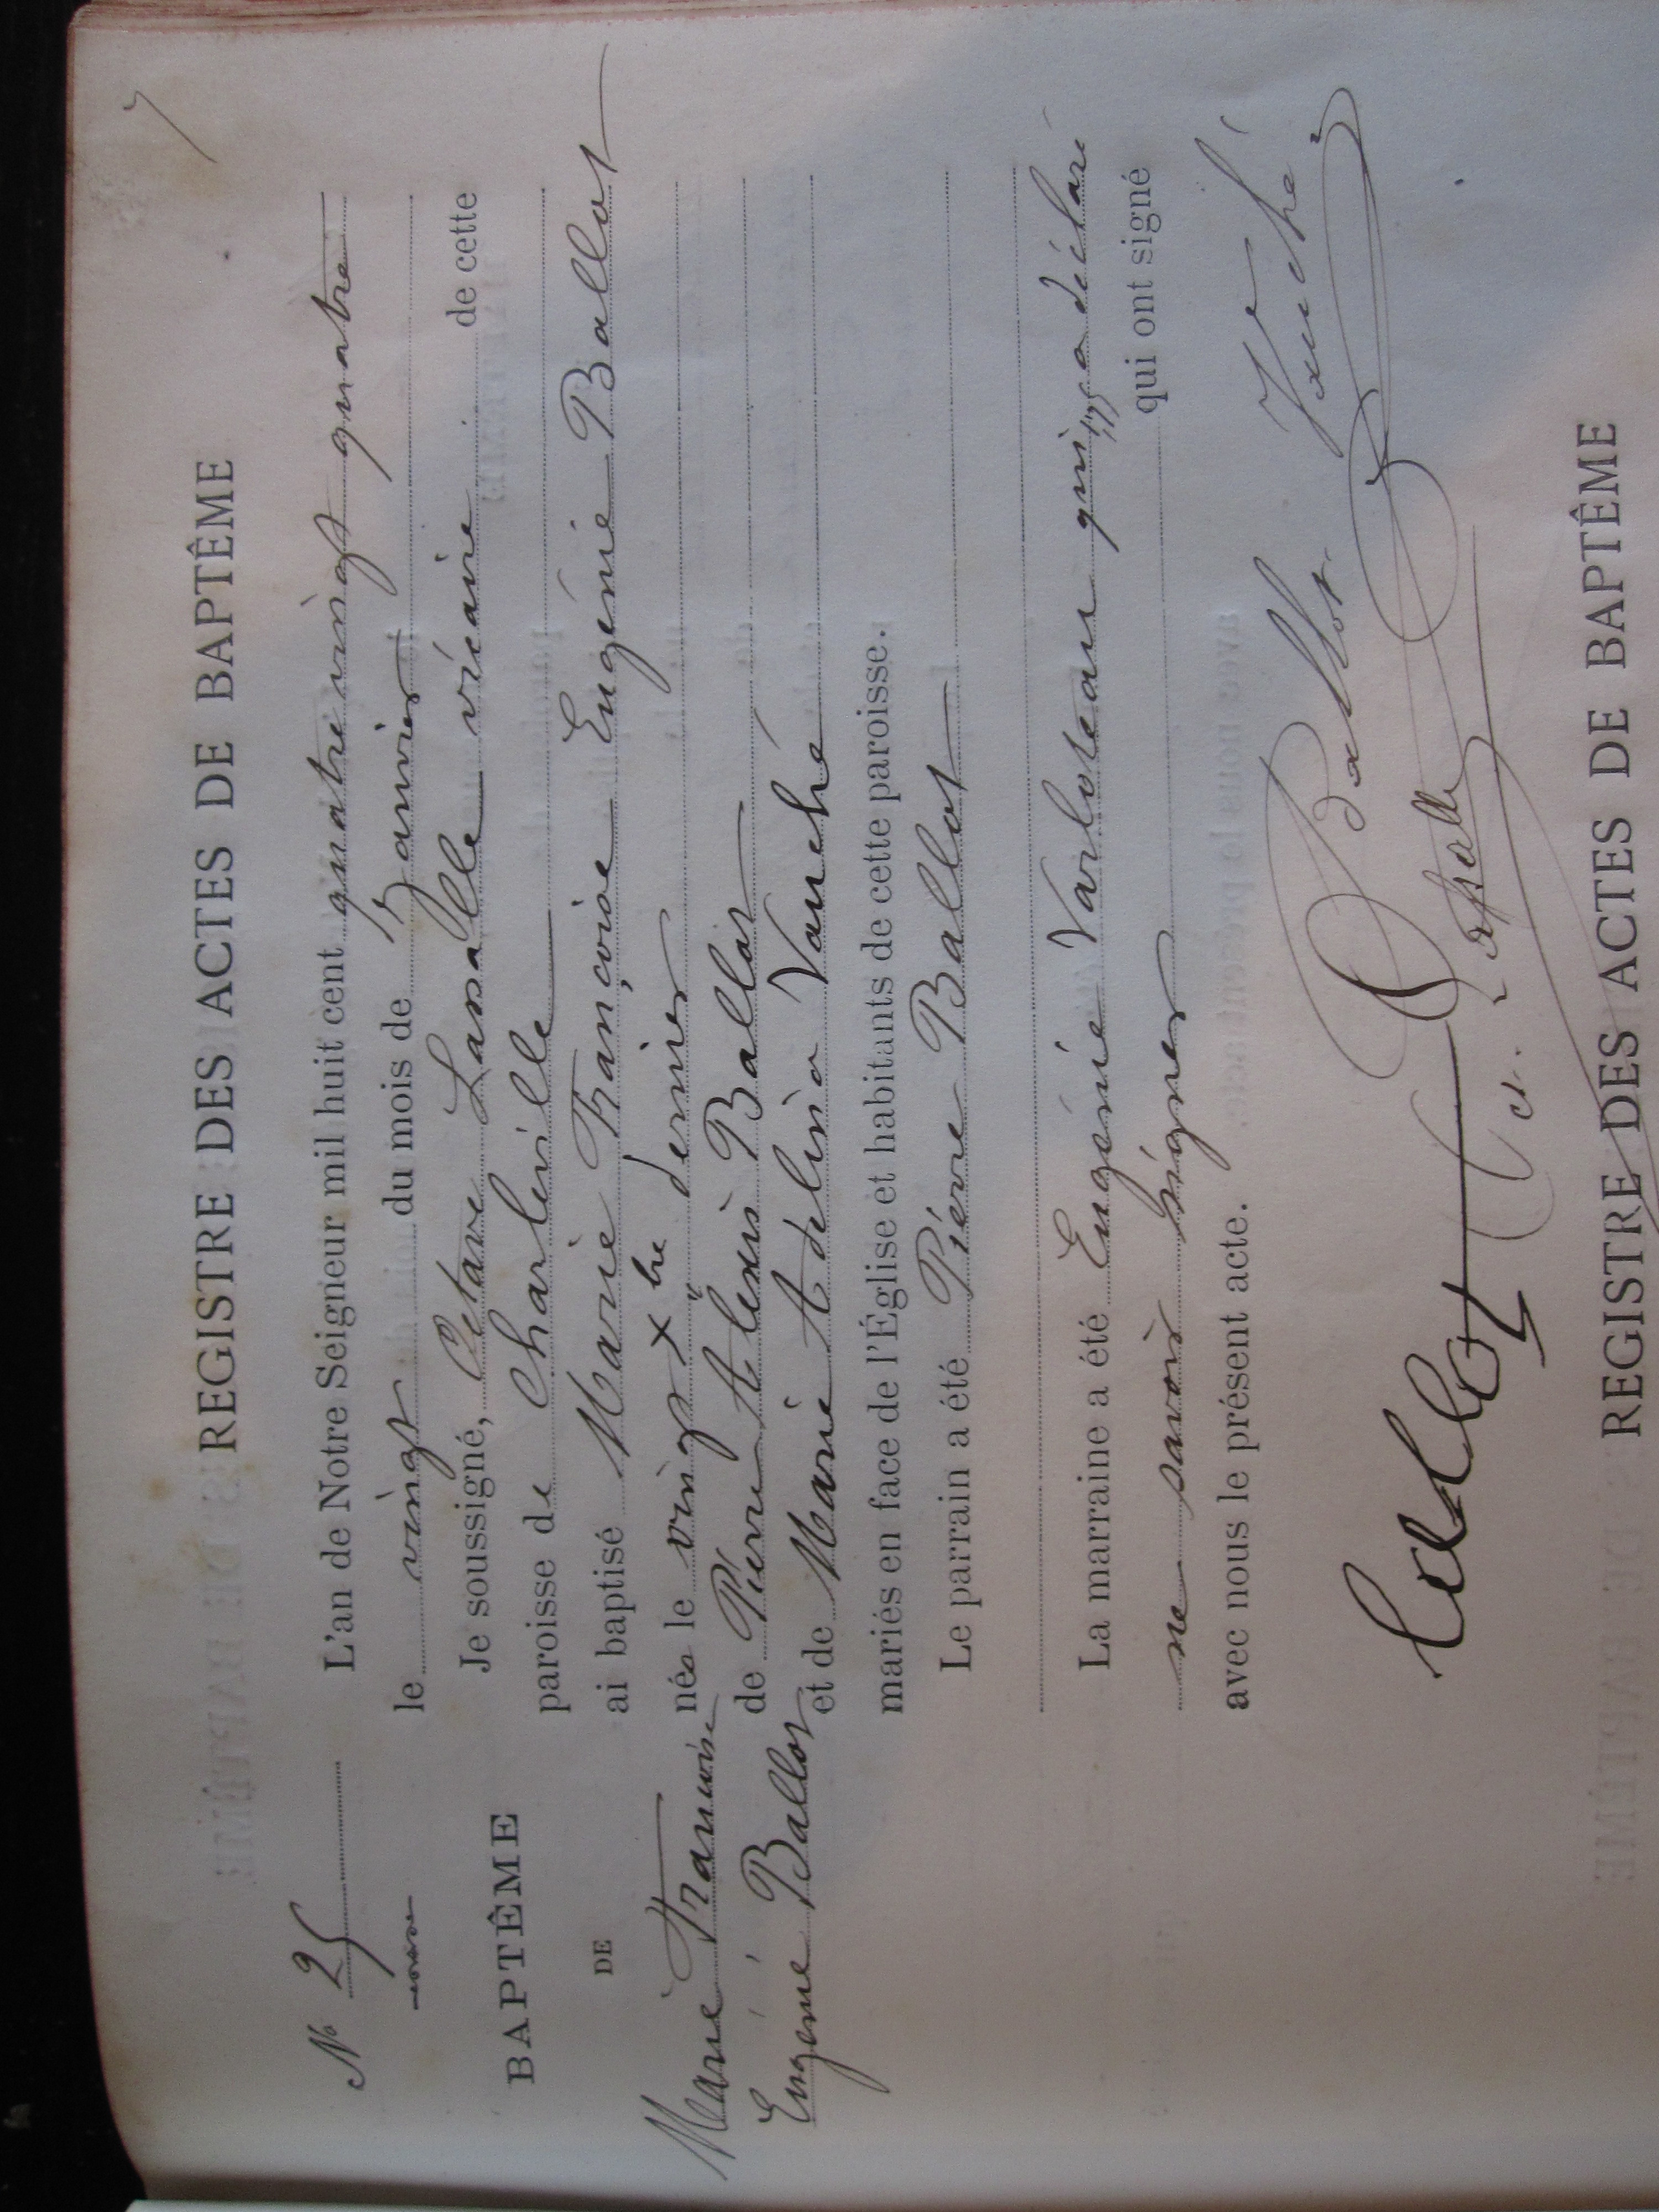 REGISTRE DES ACTES DE BAPTÊME
N° 25
L'an de Notre Seigneur mil huit cent quatre vingt quatre
le vingt du mois de Janvier
Je soussigné, Octave Lassalle vicaire de cette
paroisse de Charleville
ai baptisé Marie Françoise Eugénie Ballot
née le vingt Xbre dernier
de Pierre Alexis Ballot
et de Marie Adelina Vauché
mariés en face de l'Église et habitants de cette paroisse.
Le parrain a été Pierre Ballot
La marraine a été Eugénie Varloteau qui a déclaré
ne savoir signer qui ont signé
avec nous le présent acte.
BAPTÊME
DE
Marie Françoise
Eugénie Ballot
Ballot Vauché
Lassalle
v.
REGISTRE DES ACTES DE BAPTÊME